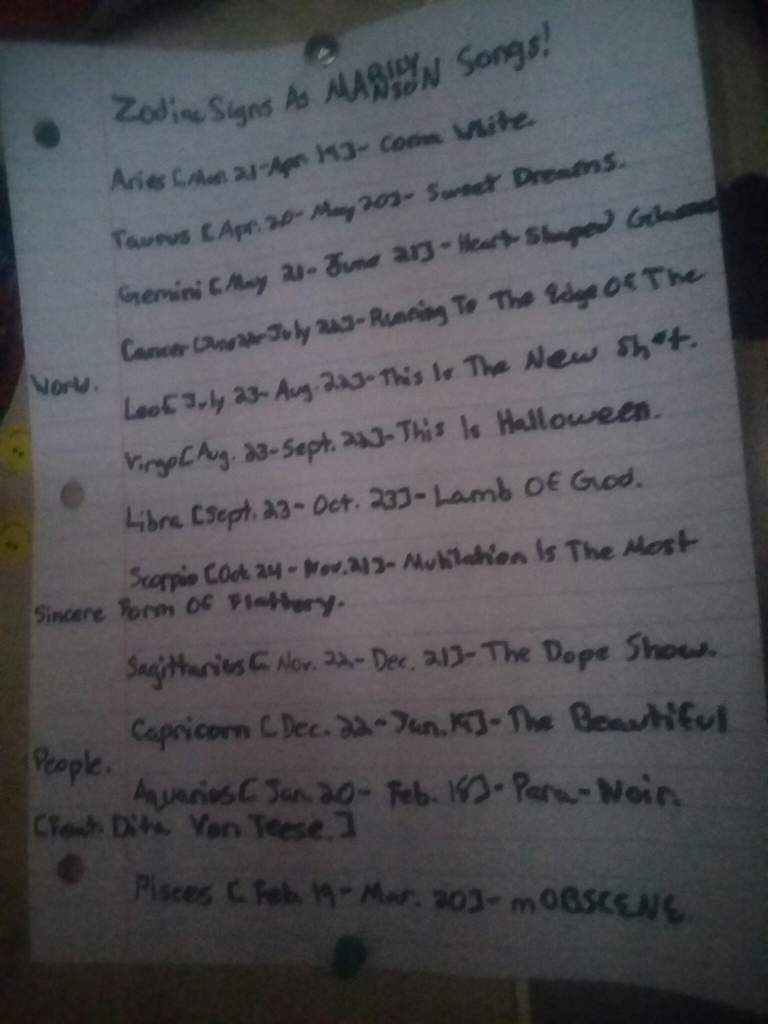 Zodiac Signs As MARILYN MANSON Songs!
Aries [Mar. 21-Apr. 19]- Coma White.
Taurus [Apr. 20- May 20]- Sweet Dreams.
Gemini [May 21- June 21]- Heart-Shaped Glasses
Cancer [June 22-July 22]-Running To The Edge Of The
World.
Leo[July 23- Aug. 22]-This Is The New Sh*t.
Virgo[Aug. 23-Sept. 22]-This Is Halloween.
Libra [Sept. 23- Oct. 23]- Lamb Of God.
Scorpio [Oct. 24- Nov. 21]- Mutilation Is The Most
Sincere Form Of Flattery.
Sagittarius[ Nov. 22- Dec. 21]- The Dope Show.
Capricorn [Dec. 22-Jan. 19]-The Beautiful
People.
Aquarius[ Jan. 20- Feb. 18]- Para-Noir.
[Feat. Dita Von Teese.]
Pisces [Feb. 19-Mar. 20]-mOBSCENE.